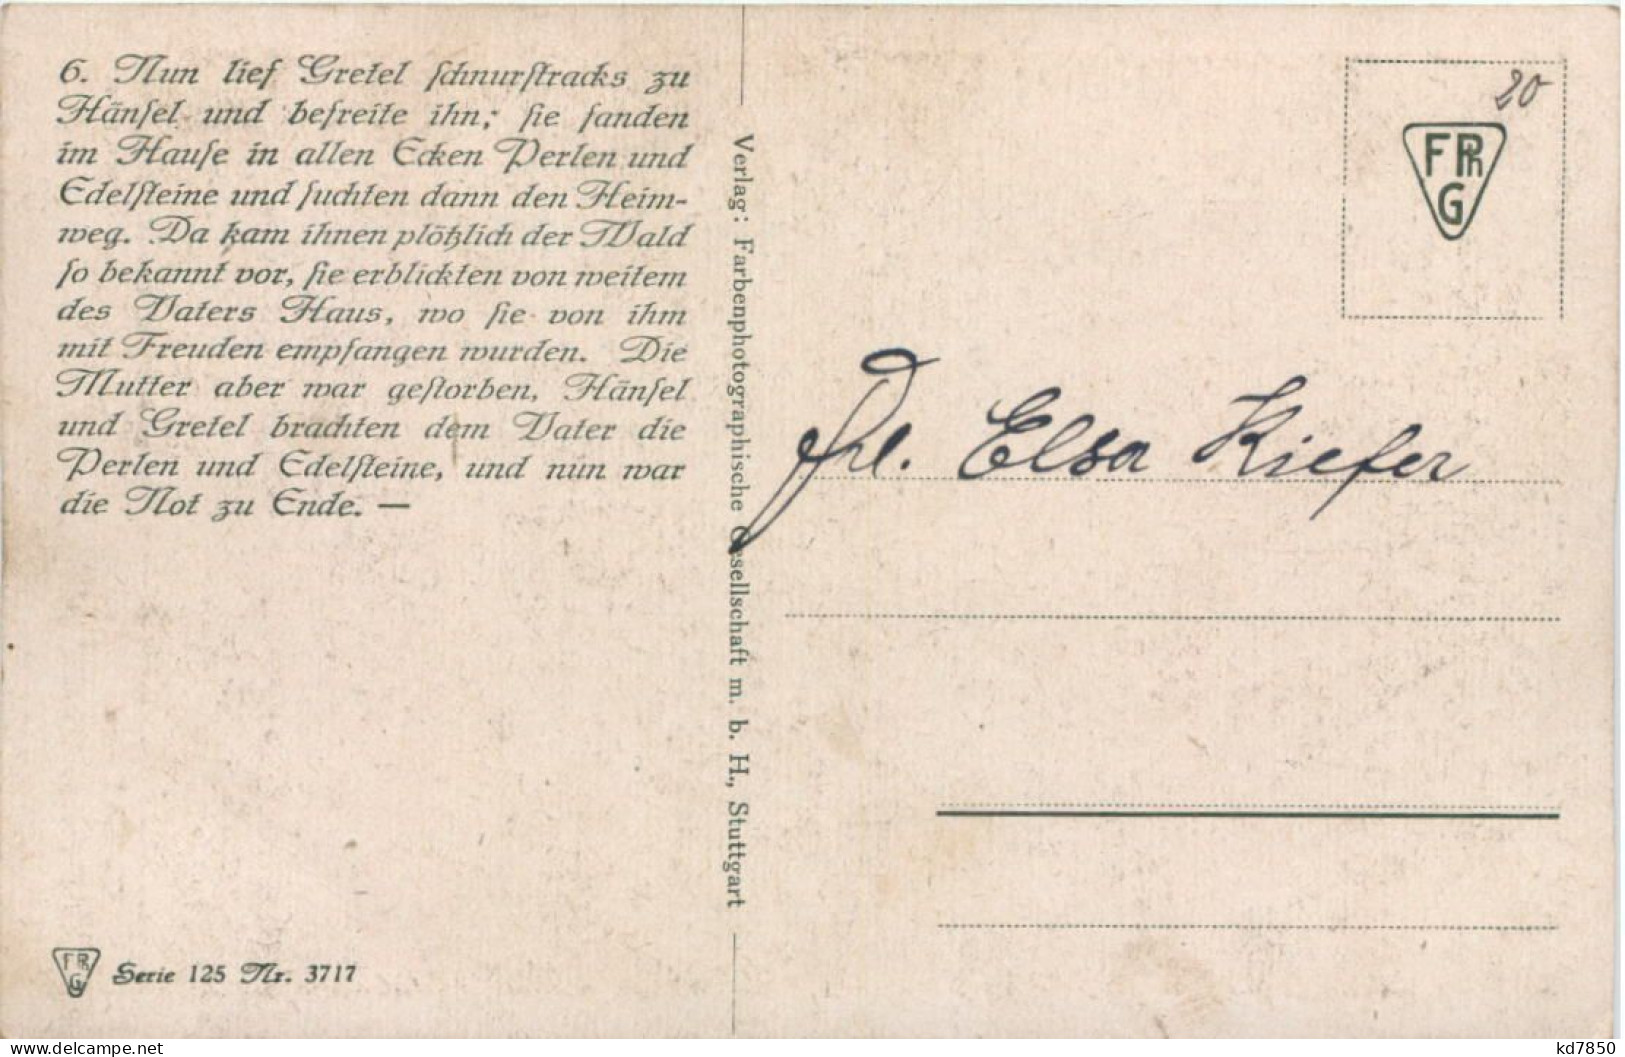 6. Nun lief Gretel schnurstracks zu
Hänsel und befreite ihn; sie fanden
im Hause in allen Ecken Perlen und
Edelsteine und suchten dann den Heim-
weg. Da kam ihnen plötzlich der Wald
so bekannt vor, sie erblickten von weitem
des Vaters Haus, wo sie von ihm
mit Freuden empfangen wurden. Die
Mutter aber war gestorben, Hänsel
und Gretel brachten dem Vater die
Perlen und Edelsteine, und nun war
die Not zu Ende. —
FPhG Serie 125 Nr. 3717
Verlag: Farbenphotographische Gesellschaft m. b. H., Stuttgart
20
FPh
G
Frl. Elsa Kiefer
www.delcampe.net
kd7850